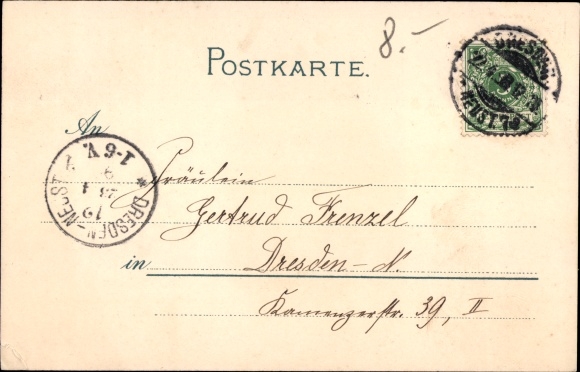 8.-
POSTKARTE.
DRESDEN
NEUST.
An
1-6 V.
DRESDEN-NEUST.
Fräulein
Gertrud Frenzel
in Dresden-N.
Kamenzerstr. 39, II